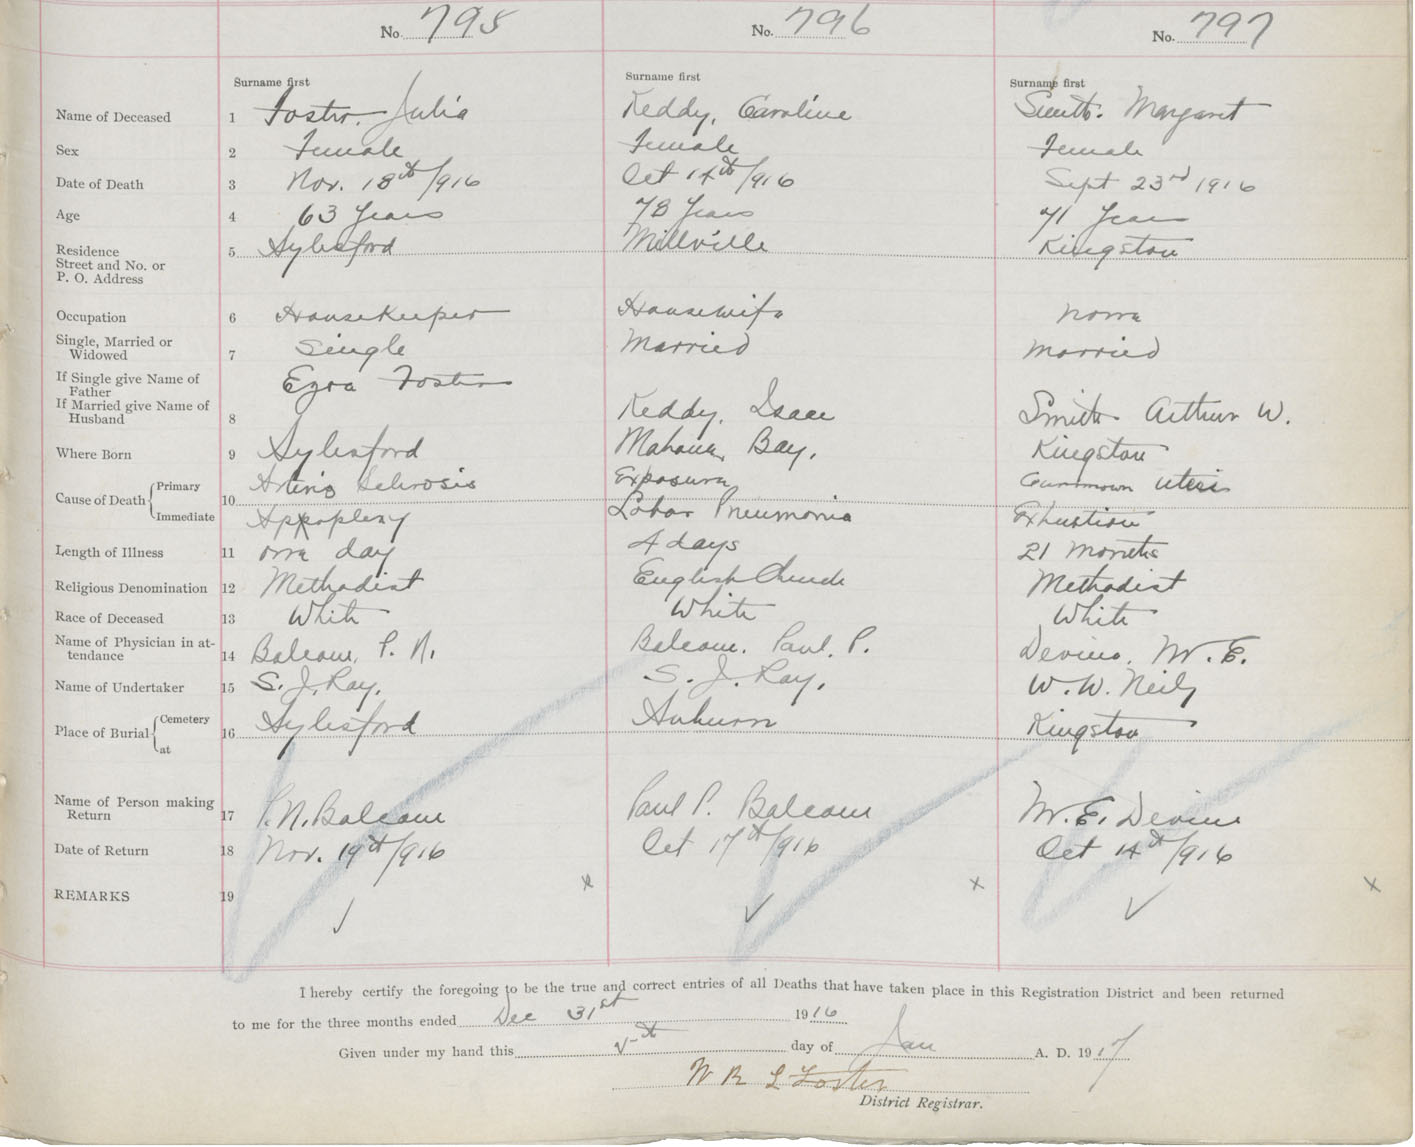 No. 795 No. 796 No. 797
Surname first Surname first Surname first
Name of Deceased 1 Foster, Julia Keddy, Caroline Smith. Margaret
Sex 2 Female Female Female
Date of Death 3 Nov. 18th/916 Oct 14th/916 Sept 23rd 1916
Age 4 63 Years 78 Years 71 Years
Residence 5 Aylesford Millville Kingston
Street and No. or
P. O. Address
Occupation 6 Housekeeper Housewife None
Single, Married or
Widowed 7 Single Married Married
If Single give Name of
Father Ezra Foster
If Married give Name of
Husband 8 Keddy, Isaac Smith Arthur W.
Where Born 9 Aylesford Mahone Bay, Kingston
Cause of Death Primary 10 Arterio Schrosis Exposure uteri
Immediate Appoplexy Lobar Pneumonia Exhustion
Length of Illness 11 one day 4 days 21 Months
Religious Denomination 12 Methodist English Church Methodist
Race of Deceased 13 White White White
Name of Physician in at-
tendance 14 Balcom, P. N. Balcom. Paul. P. Devine, M. E.
Name of Undertaker 15 S. J. Ray, S. J. Ray, W. W. Neily
Place of Burial Cemetery 16 Aylesford Auburn Kingston
at
Name of Person making
Return 17 P. N. Balcom Paul P. Balcom M. E. Devine
Date of Return 18 Nov. 19th/916 Oct 17th/916 Oct 14th/916
REMARKS 19 x x x
✓ ✓ ✓
I hereby certify the foregoing to be the true and correct entries of all Deaths that have taken place in this Registration District and been returned
to me for the three months ended Dec 31st 1916
Given under my hand this 5th day of Jan A. D. 1917
W R L Foster
District Registrar.